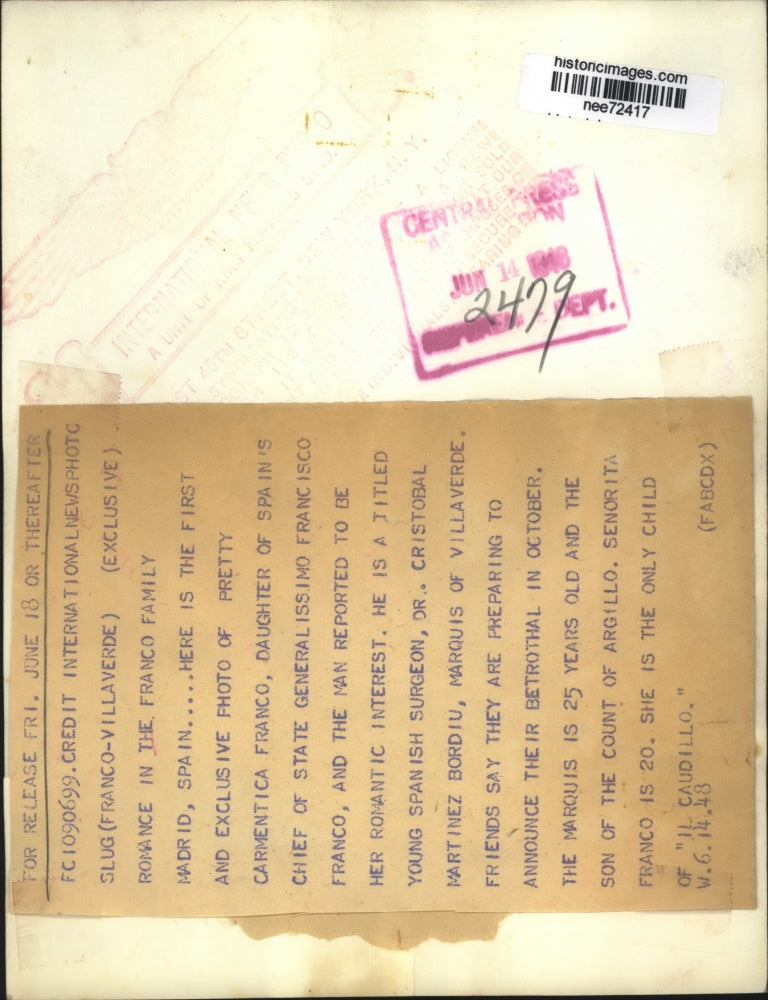 historicimages.com
nee72417
INTERNATIONAL NEWS
A UNIT OF KING
45TH STREET, NEW YORK, N. Y.
CENTRAL PRESS
JUN 14 1948
2479
DEPT.
FOR RELEASE FRI. JUNE 18 OR THEREAFTER
FC1090699.CREDIT INTERNATIONALNEWSPHOTC
SLUG(FRANCO-VILLAVERDE) (EXCLUSIVE)
ROMANCE IN THE FRANCO FAMILY
MADRID, SPAIN.....HERE IS THE FIRST
AND EXCLUSIVE PHOTO OF PRETTY
CARMENTICA FRANCO, DAUGHTER OF SPAIN'S
CHIEF OF STATE GENERALISSIMO FRANCISCO
FRANCO, AND THE MAN REPORTED TO BE
HER ROMANTIC INTEREST. HE IS A TITLED
YOUNG SPANISH SURGEON, DR.. CRISTOBAL
MARTINEZ BORDIU, MARQUIS OF VILLAVERDE.
FRIENDS SAY THEY ARE PREPARING TO
ANNOUNCE THEIR BETROTHAL IN OCTOBER.
THE MARQUIS IS 25 YEARS OLD AND THE
SON OF THE COUNT OF ARGILLO. SENORITA
FRANCO IS 20. SHE IS THE ONLY CHILD
OF "IL CAUDILLO."
W.6.14.48 (FABCDX)